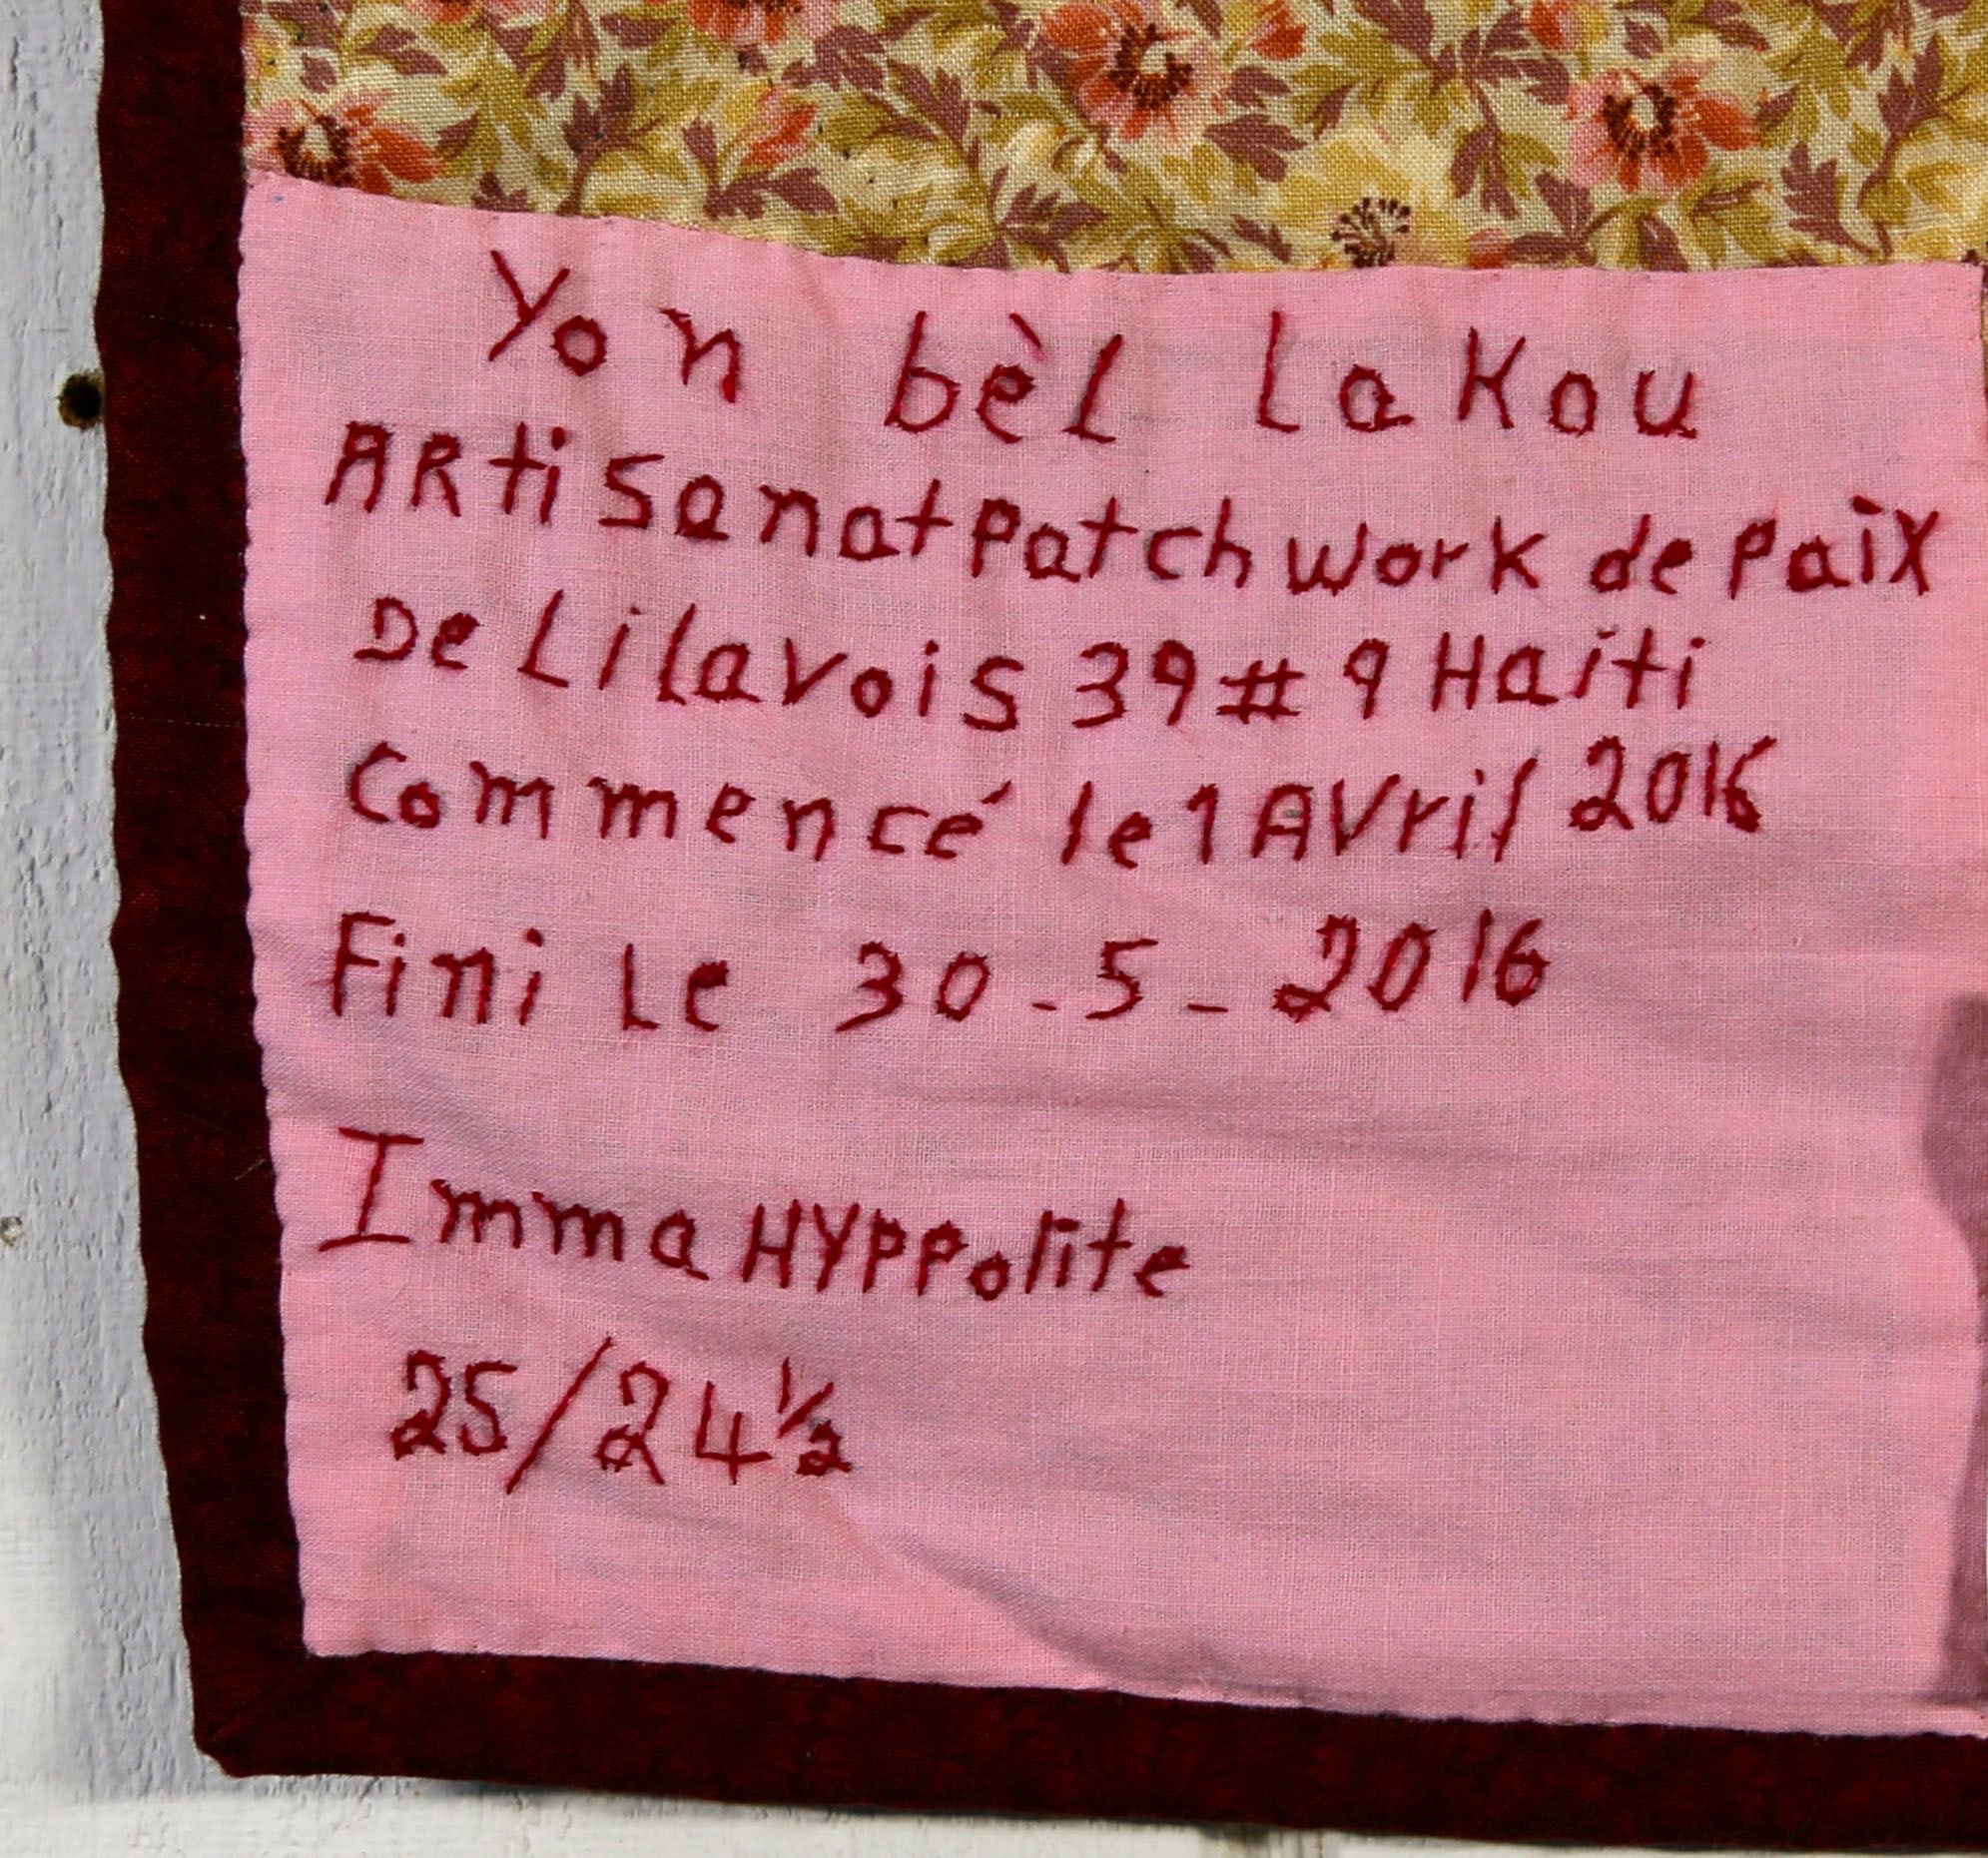 Yon bèl lakou
ARtisanat Patchwork de paix
De Lilavois 39 # 9 Haiti
Commencé le 1 AVril 2016
Fini Le 30-5-2016
Imma HYPPolite
25/24½